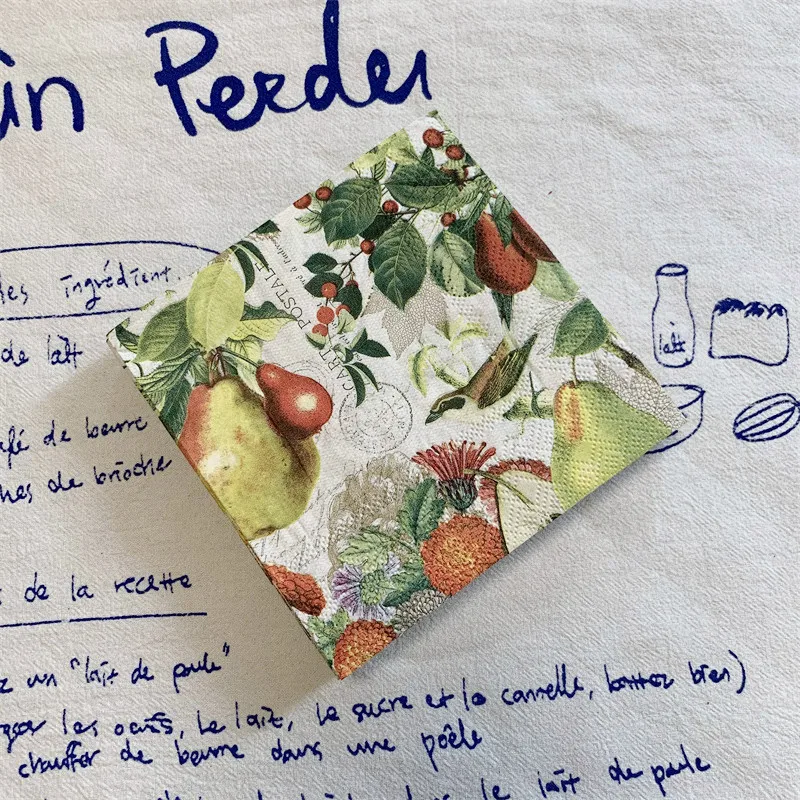 ûn Perdu
des ingrédient.
de lait
lait
afé de beurre
hes de brioche
de la recette
un "lait de poule"
les oeufs, le lait, le sucre et la cannelle, battez bien)
chauffer de beurre dans une poêle
le lait de poule
CARTE POSTALE